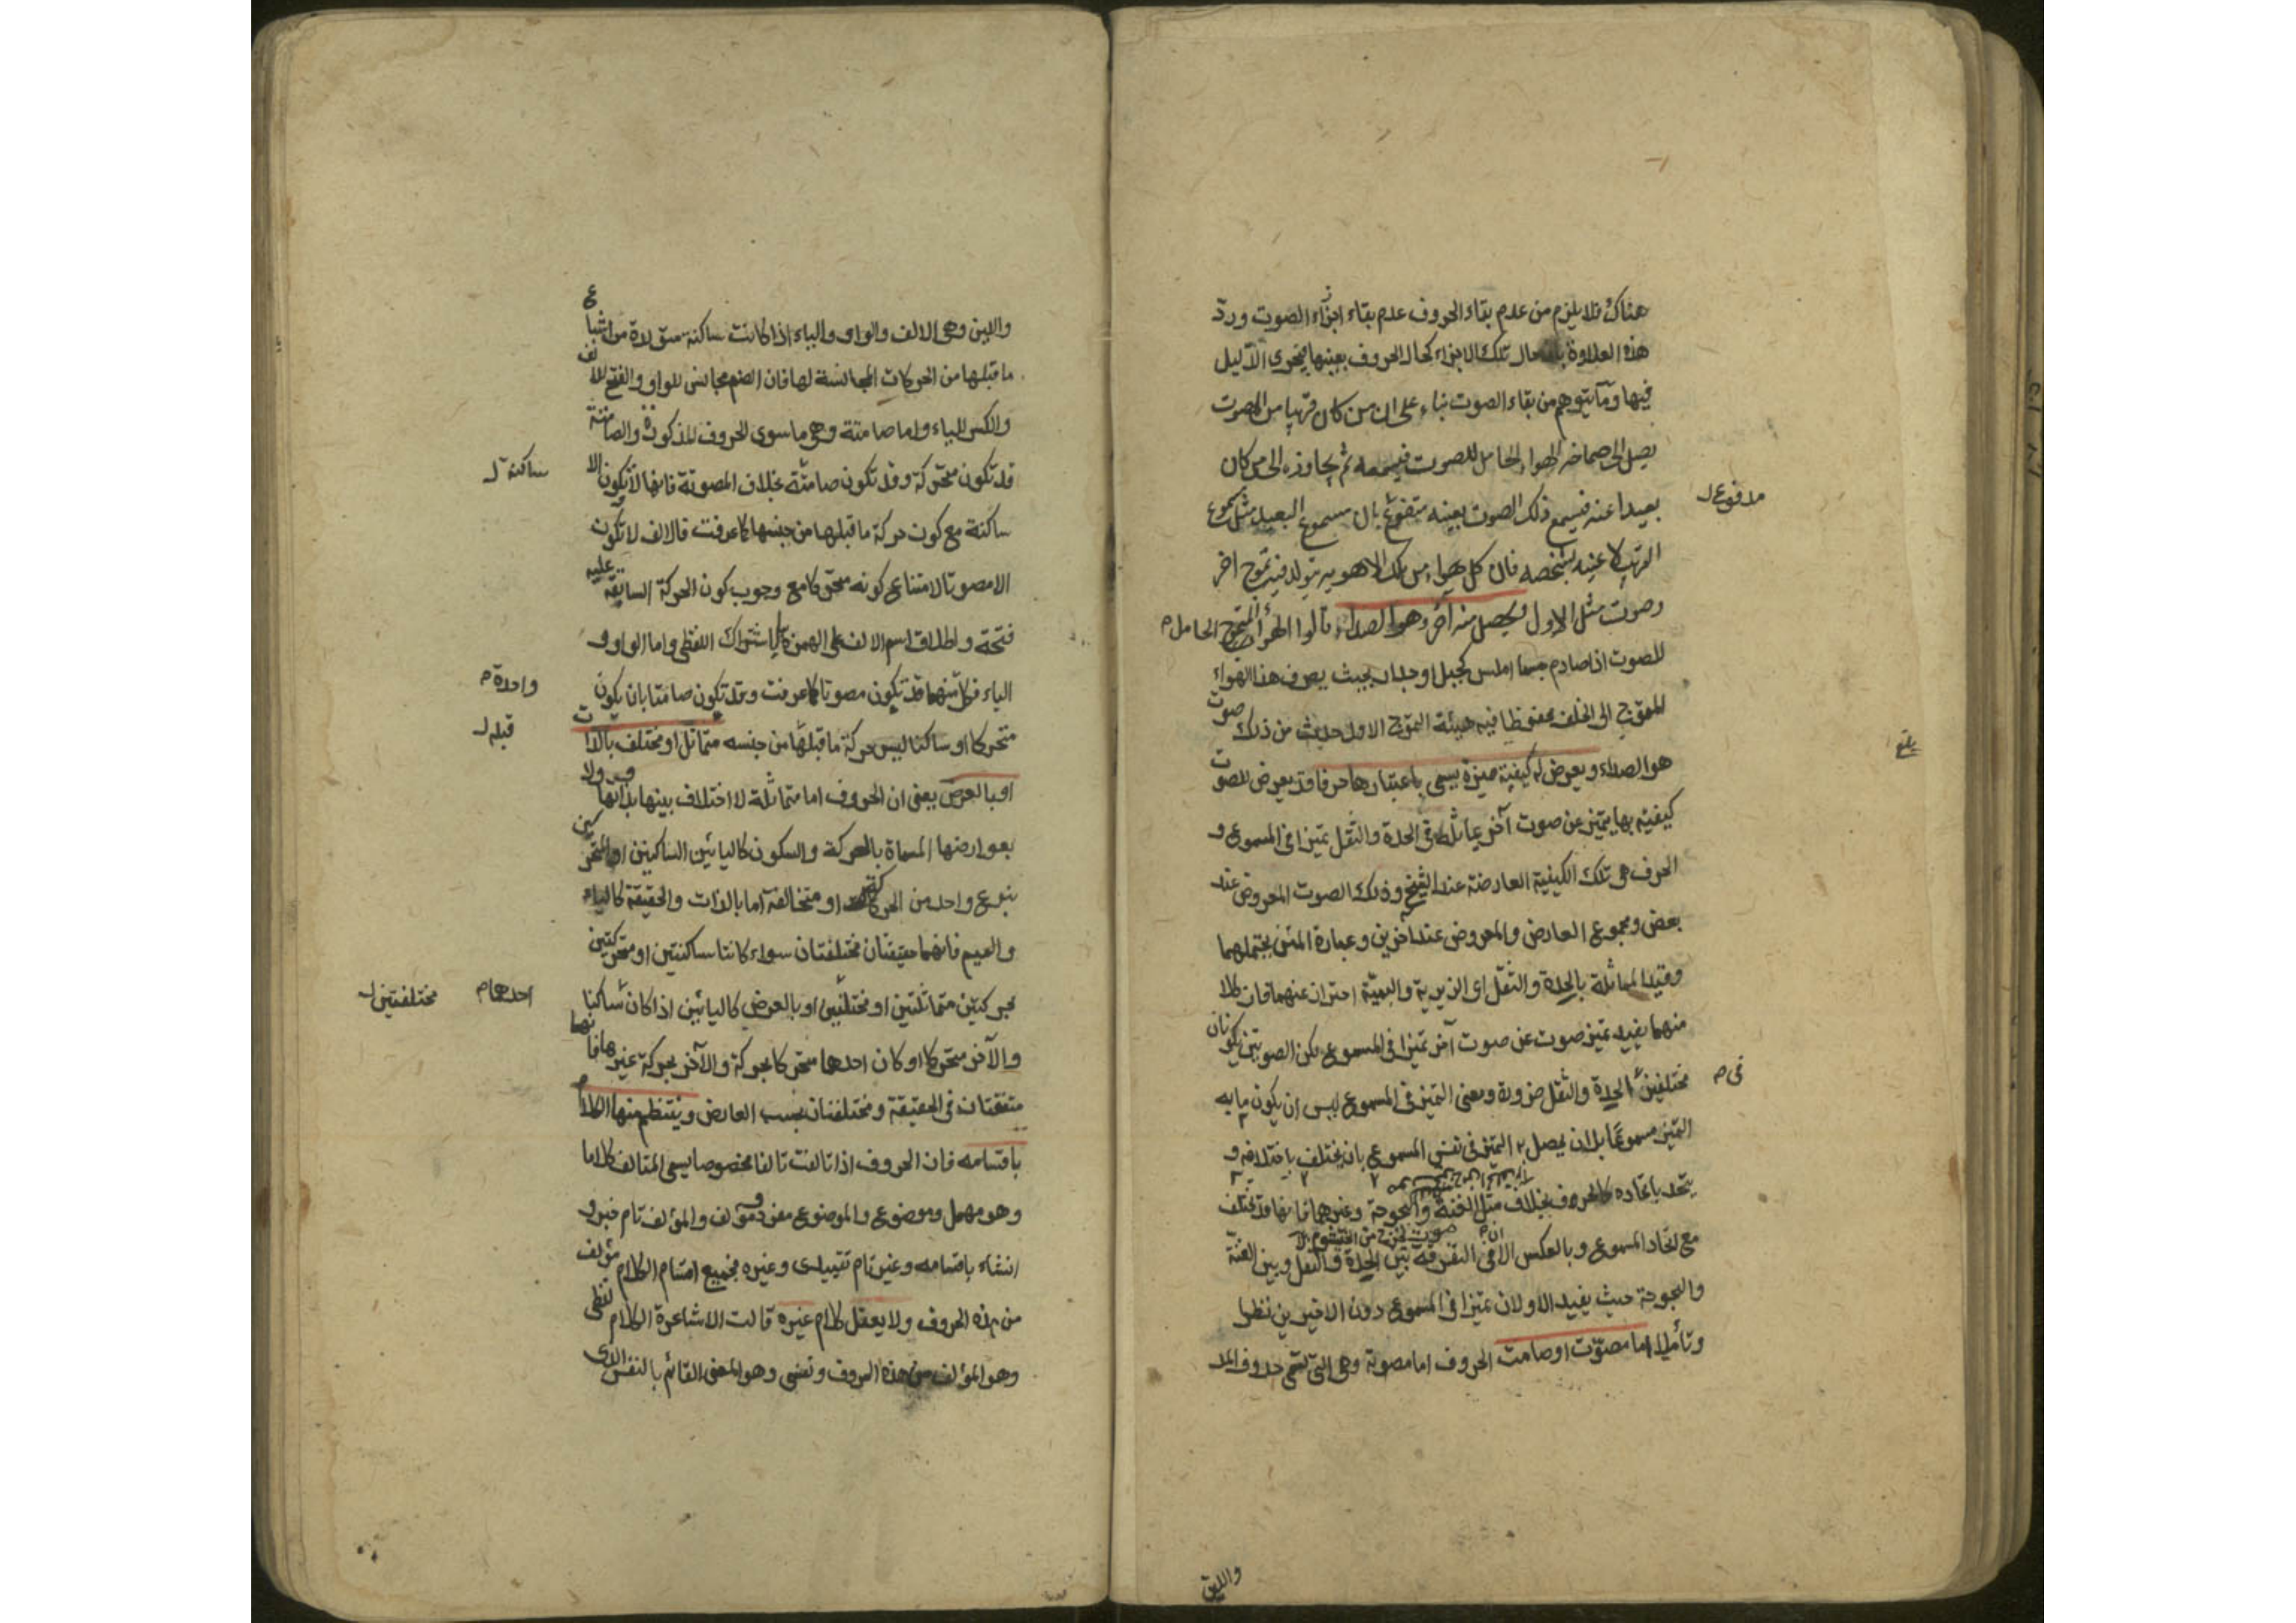 هناك فلا يلزم من عدم بقاء الحروف عدم بقاء اجزاء الصوت ورد
هذه العلاوة بان حال تلك الاجزاء كحال الحروف بعينها فيجرى الدليل
فيها وما يتوهم من بقاء الصوت بناء على ان من كان قريبا من المصوت
يصل الى صماخه الهواء الحامل للصوت فيسمعه ثم يجاوزه الى من كان
بعيدا عنه فيسمع ذلك الصوت بعينه مدفوع بان مسموع البعيد مثل مسموع
القريب لا عينه بشخصه فان كل هواء من تلك الاهوية يتولد فيه تموج اخر
وصوت مثل الاول ويحصل منه آخر وهو الصداء قالوا الهواء المتموج الحامل
للصوت اذا صادم جسما املس كجبل او جدار بحيث يصرف هذا الهواء
المتموج الى الخلف محفوظا فيه هيئة التموج الاول حدث من ذلك صوت
هو الصداء ويعرض له كيفية مميزة يسمى باعتبارها حرفا قد يعرض للصوت
كيفية بها يتميز عن صوت آخر يماثله فى الحدة والثقل تميزا فى المسموع و
الحرف هى تلك الكيفية العارضة عند الشيخ وذلك الصوت المعروض عند
بعض ومجموع العارض والمعروض عند آخرين وعبارة المتن يحتملهما
وقيد المماثلة بالحدة والثقل اى الزيرية والبمية احتراز عنهما فان كلا
منهما يفيد تميز صوت عن صوت آخر تميزا فى المسموع لكن الصوتين يكونان
مختلفين فى الحدة والثقل ضرورة ومعنى التميز فى المسموع ليس ان يكون ما به
التميز مسموعا بل ان يحصل به التميز فى نفس المسموع بان يختلف باختلافه و
يتحد باتحاده كالحروف بخلاف مثل الغنة والبحوحة وغيرهما فانها قد تختلف
مع اتحاد المسموع وبالعكس الا ان فى التفرقة بين الحدة والثقل وبين الغنة
والبحوحة حيث يفيد الاولان تميزا فى المسموع دون الاخيرين نظرا
وتأملا اما مصوت او صامت الحروف اما مصوتة وهى التى تسمى حروف المد
مدفوع
فى
واللين
واللين وهى الالف والواو والياء اذا كانت ساكنة متولدة من اشباع
ما قبلها من الحركات المجانسة لها فان الضم مجانس للواو والفتح للالف
والكسر للياء واما صامتة وهى ما سوى الحروف المذكورة والصامتة
قد تكون متحركة وقد تكون صامتة بخلاف المصوتة فانها لا تكون الا
ساكنة مع كون حركة ما قبلها من جنسها كما عرفت فالالف لا تكون
الا مصوتا لامتناع كونه متحركا مع وجوب كون الحركة السابقة عليه
فتحة واطلاق اسم الالف على الهمزة بالاشتراك اللفظى واما الواو و
الياء فكل منهما قد تكون مصوتا كما عرفت وقد تكون صامتا بان يكون
متحركا او ساكنا ليس حركة ما قبلها من جنسه متماثل او مختلف بالذات
او بالعرض يعنى ان الحروف اما متماثلة لا اختلاف بينها بذاتها ولا
بعوارضها المسماة بالحركة والسكون كاليائين الساكنين او المتحركين
بنوع واحد من الحركة او متخالفة اما بالذات والحقيقة كالياء
والميم فانهما حقيقتان مختلفتان سواء كانتا ساكنتين او متحركتين
بحركتين متماثلتين او مختلفتين او بالعرض كاليائين اذا كان ساكنا
والآخر متحركا او كان احدهما متحركا بحركة والآخر بحركة غيرها فانهما
متفقتان فى الحقيقة ومختلفتان بحسب العارض وينتظم منها الكلام
باقسامه فان الحروف اذا تالفت تالفا مخصوصا يسمى المتالف كلاما
وهو مهمل وموضوع والموضوع مفرد ومؤلف والمؤلف تام خبر و
انشاء باقسامه وغير تام تقييدى وغيره فجميع اقسام الكلام مؤلف
من هذه الحروف ولا يعقل كلام غيره قالت الاشاعرة الكلام لفظى
وهو المؤلف من هذه الحروف ونفسى وهو المعنى القائم بالنفس الذى
ساكنة
واحدة
قبله
احدهما
مختلفتين